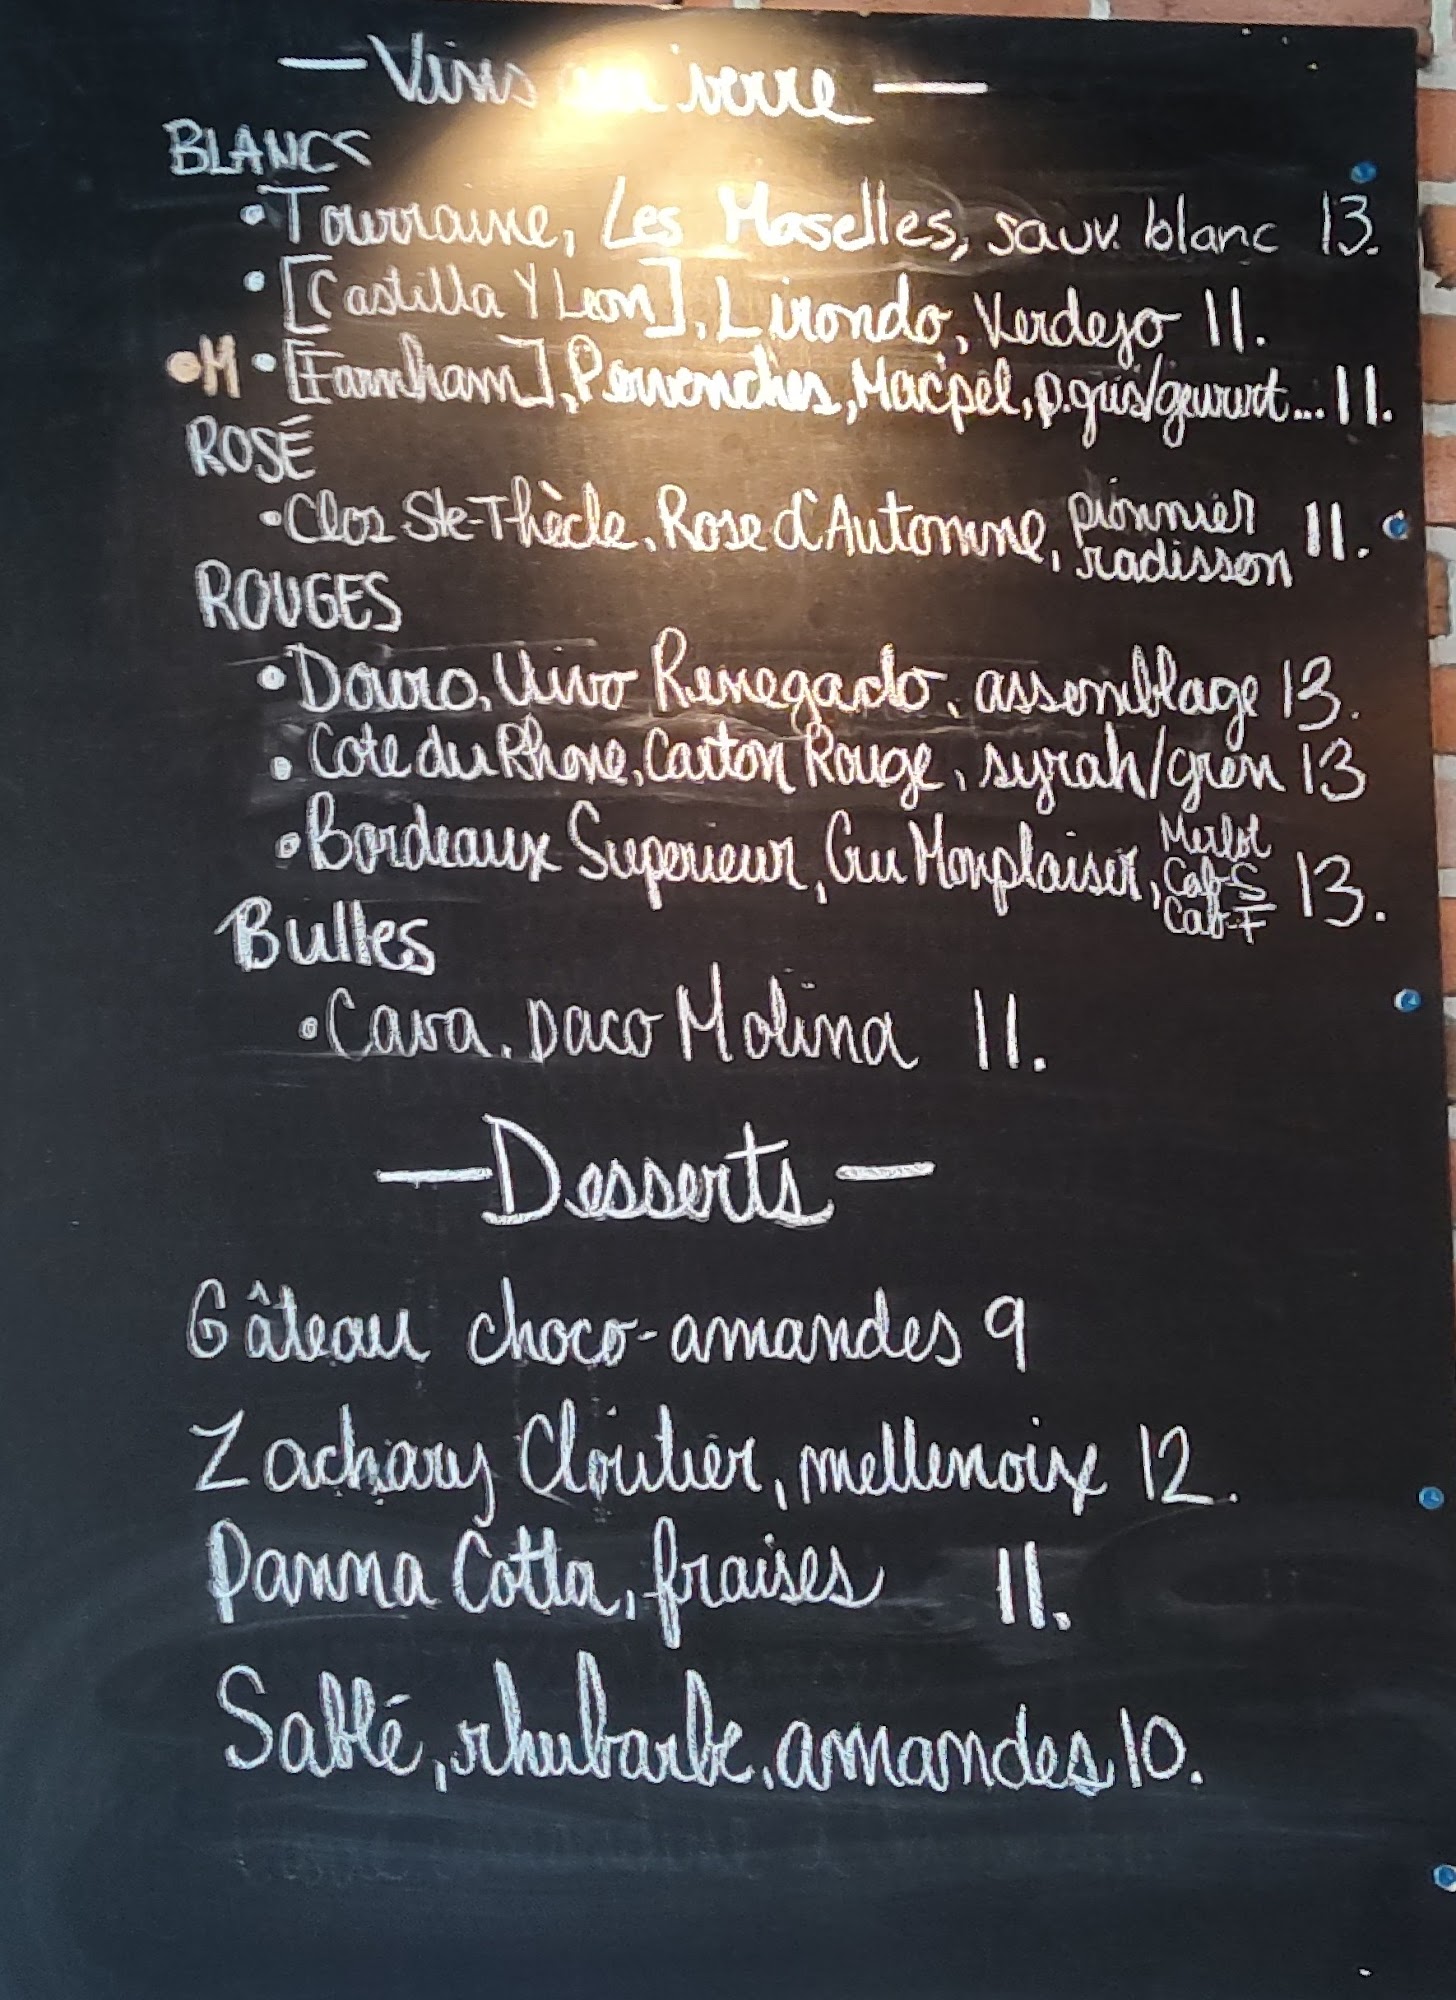 — Vins au verre —
BLANCS
• Tourraine, Les Maselles, sauv. blanc 13.
• [Castilla Y Leon], Lirondo, Verdejo 11.
•M • [Farnham], Pervenches, Mac'pel, p.gris/gewurt... 11.
ROSÉ
• Clos Ste-Thècle, Rose d'Automne, pionnier radisson 11.
ROUGES
• Douro, Vivo Renegado, assemblage 13.
• Cote du Rhone, Carton Rouge, syrah/gren 13
• Bordeaux Superieur, Cru Monplaisir, Merlot Cab-S Cab-F 13.
Bulles
• Cava. Paco Molina 11.
— Desserts —
Gâteau choco-amandes 9
Zachary Cloutier, mellenoix 12.
Panna Cotta, fraises 11.
Sablé, rhubarbe, amandes 10.